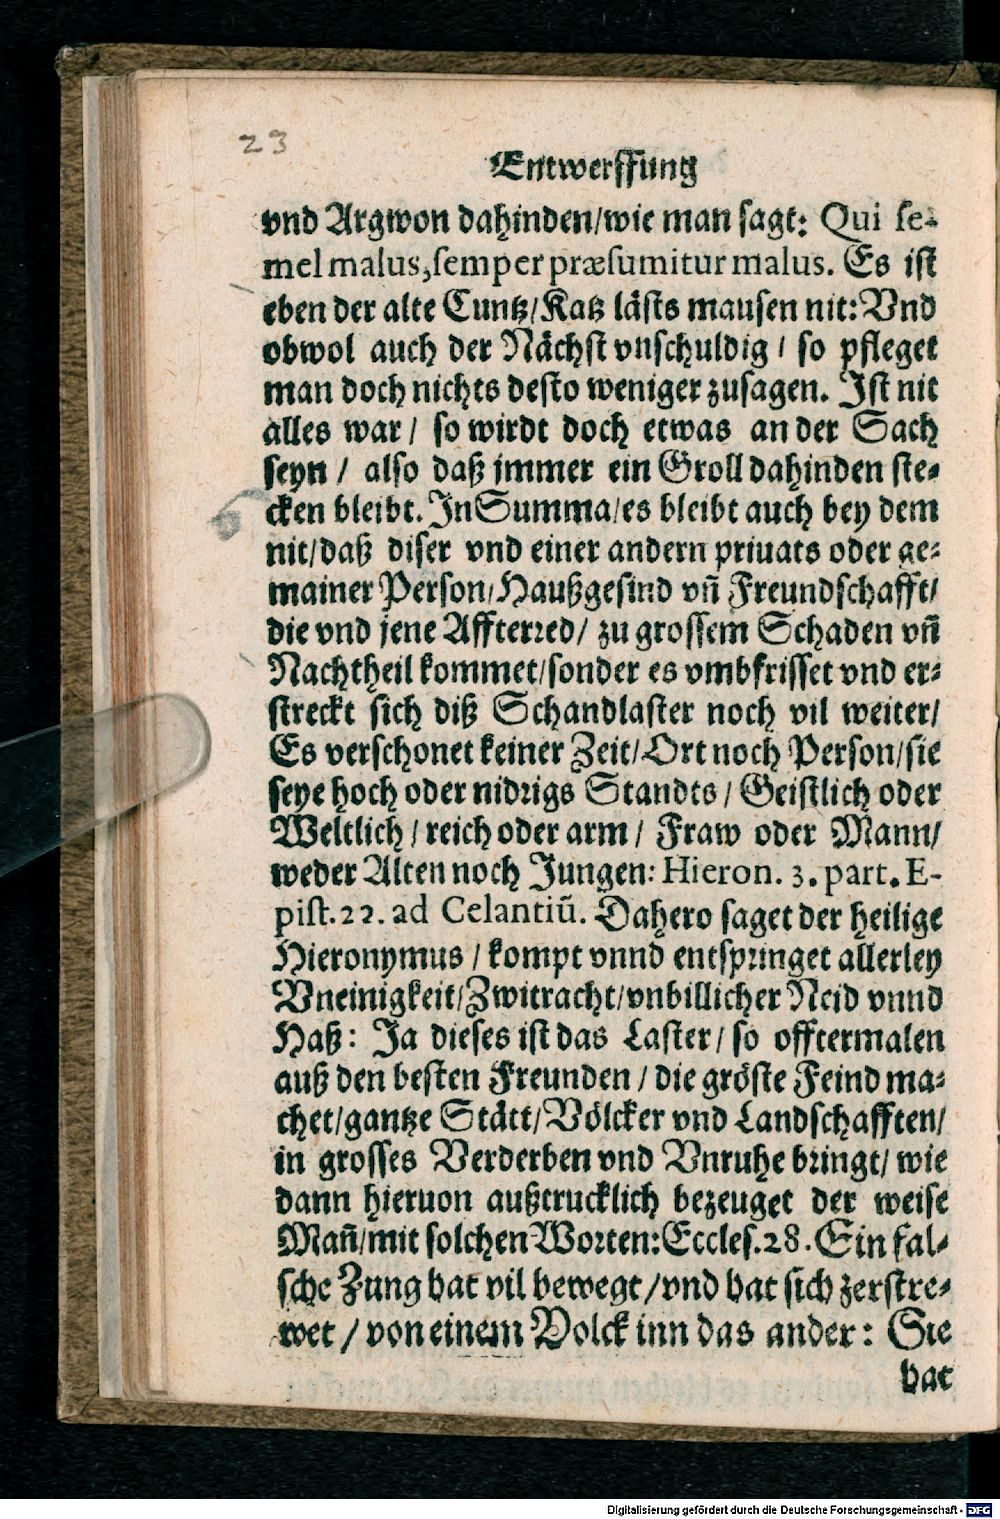 23
Entwerffung
vnd Argwon dahinden/wie man sagt: Qui se-
mel malus, semper præsumitur malus. Es ist
eben der alte Cuntz/Katz lästs mausen nit: Vnd
obwol auch der Nächst vnschuldig / so pfleget
man doch nichts desto weniger zusagen. Ist nit
alles war / so wirdt doch etwas an der Sach
seyn / also daß jmmer ein Groll dahinden ste-
cken bleibt. In Summa/es bleibt auch bey dem
nit/daß diser vnd einer andern priuats oder ge-
mainer Person/Haußgesind vñ Freundschafft/
die vnd jene Affterred/ zu grossem Schaden vñ
Nachtheil kommet/sonder es vmbfrisset vnd er-
streckt sich diß Schandlaster noch vil weiter/
Es verschonet keiner Zeit/Ort noch Person/sie
seye hoch oder nidrigs Standts / Geistlich oder
Weltlich / reich oder arm / Fraw oder Mann/
weder Alten noch Jungen: Hieron. 3. part. E-
pist. 22. ad Celantiũ. Dahero saget der heilige
Hieronymus / kompt vnnd entspringet allerley
Vneinigkeit/Zwitracht/vnbillicher Neid vnnd
Haß: Ja dieses ist das Laster / so offtermalen
auß den besten Freunden / die gröste Feind ma-
chet/gantze Stätt/Völcker vnd Landschafften/
in grosses Verderben vnd Vnruhe bringt/ wie
dann hieruon außtrucklich bezeuget der weise
Mañ/mit solchen Worten: Eccles. 28. Ein fal-
sche Zung hat vil bewegt /vnd hat sich zerstre-
wet / von einem Volck inn das ander: Sie
hat
Digitalisierung gefördert durch die Deutsche Forschungsgemeinschaft - DFG